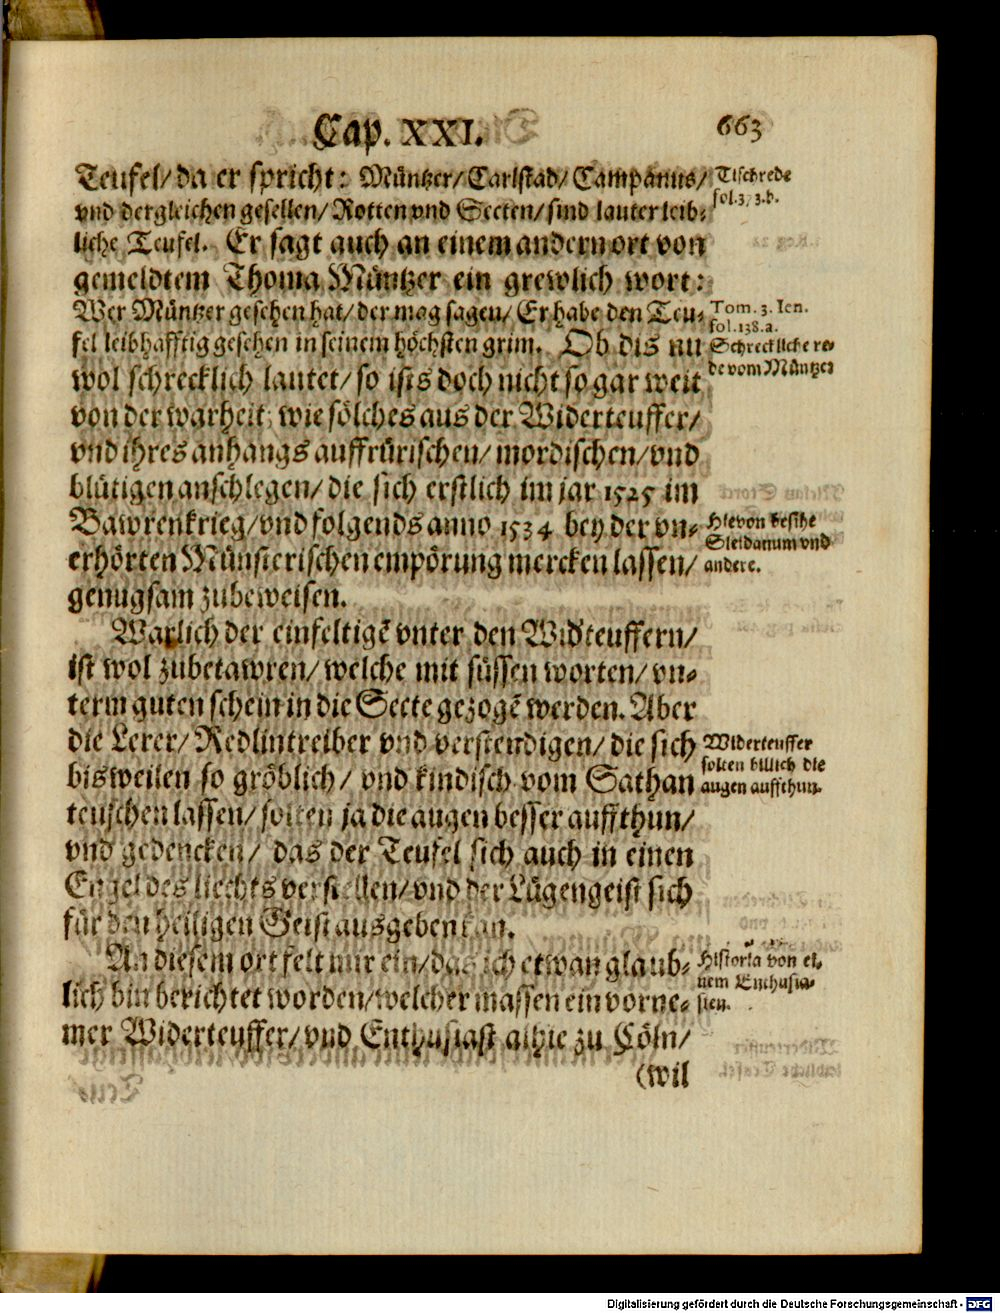 Cap. XXI. 663
Teufel/ da er spricht: Müntzer/ Carlstad/ Campanus/
vnd dergleichen gesellen/ Rotten vnd Secten/ sind lauter leib-
liche Teufel. Er sagt auch an einem andern ort von
gemeldtem Thoma Müntzer ein grewlich wort:
Wer Müntzer gesehen hat/ der mag sagen/ Er habe den Teu-
fel leibhafftig gesehen in seinem höchsten grim. Ob dis nu
wol schrecklich lautet/ so ists doch nicht so gar weit
von der warheit, wie sölches aus der Widerteuffer/
vnd ihres anhangs auffrürischen/ mordischen/ vnd
blütigen anschlegen/ die sich erstlich im jar 1525 im
Bawrenkrieg/ vnd folgends anno 1534 bey der vn-
erhörten Münsterischen empörung mercken lassen/
genugsam zubeweisen.
Warlich der einfeltigē vnter den Widteuffern/
ist wol zubetawren/ welche mit süssen worten/ vn-
term guten schein in die Secte gezogē werden. Aber
die Lerer/ Redlintreiber vnd verstendigen/ die sich
bisweilen so gröblich/ vnd kindisch vom Sathan
teuschen lassen/ solten ja die augen besser auffthun/
vnd gedencken/ das der Teufel sich auch in einen
Engel des liechts verstellen/ vnd der Lügengeist sich
für den heiligen Geist ausgeben kan.
An diesem ort felt mir ein/ das ich etwan glaub-
lich bin berichtet worden/ welcher massen ein vorne-
mer Widerteuffer/ vnd Enthusiast alhie zu Cöln/
(wil
Tischrede
fol.3, 3.b.
Tom. 3. Ien.
fol. 138. a.
Schreckliche re-
de vom Müntzer
Hievon besihe
Sleidanum vnd
andere.
Widerteuffer
solten billich die
augen auffthun.
Historia von ei-
nem Enthusia-
sten.
Digitalisierung gefördert durch die Deutsche Forschungsgemeinschaft - DFG